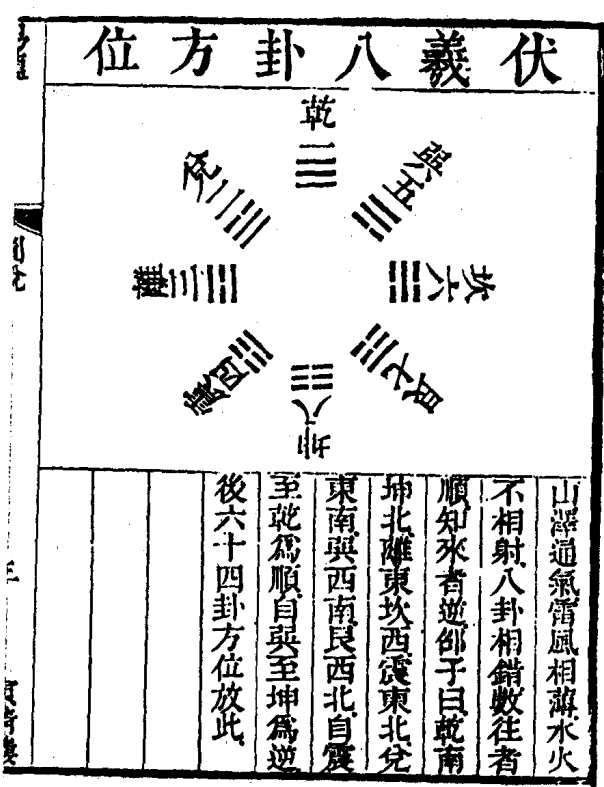 伏羲八卦方位
乾一
兌二
離三
震四
巽五
坎六
艮七
坤八
山澤通氣雷風相薄、水火
不相射、八卦相錯、數往者
順、知來者逆、邵子曰、乾南
坤北、離東坎西、震東北、兌
東南、巽西南、艮西北、自震
至乾爲順、自巽至坤爲逆、
後六十四卦方位放此、